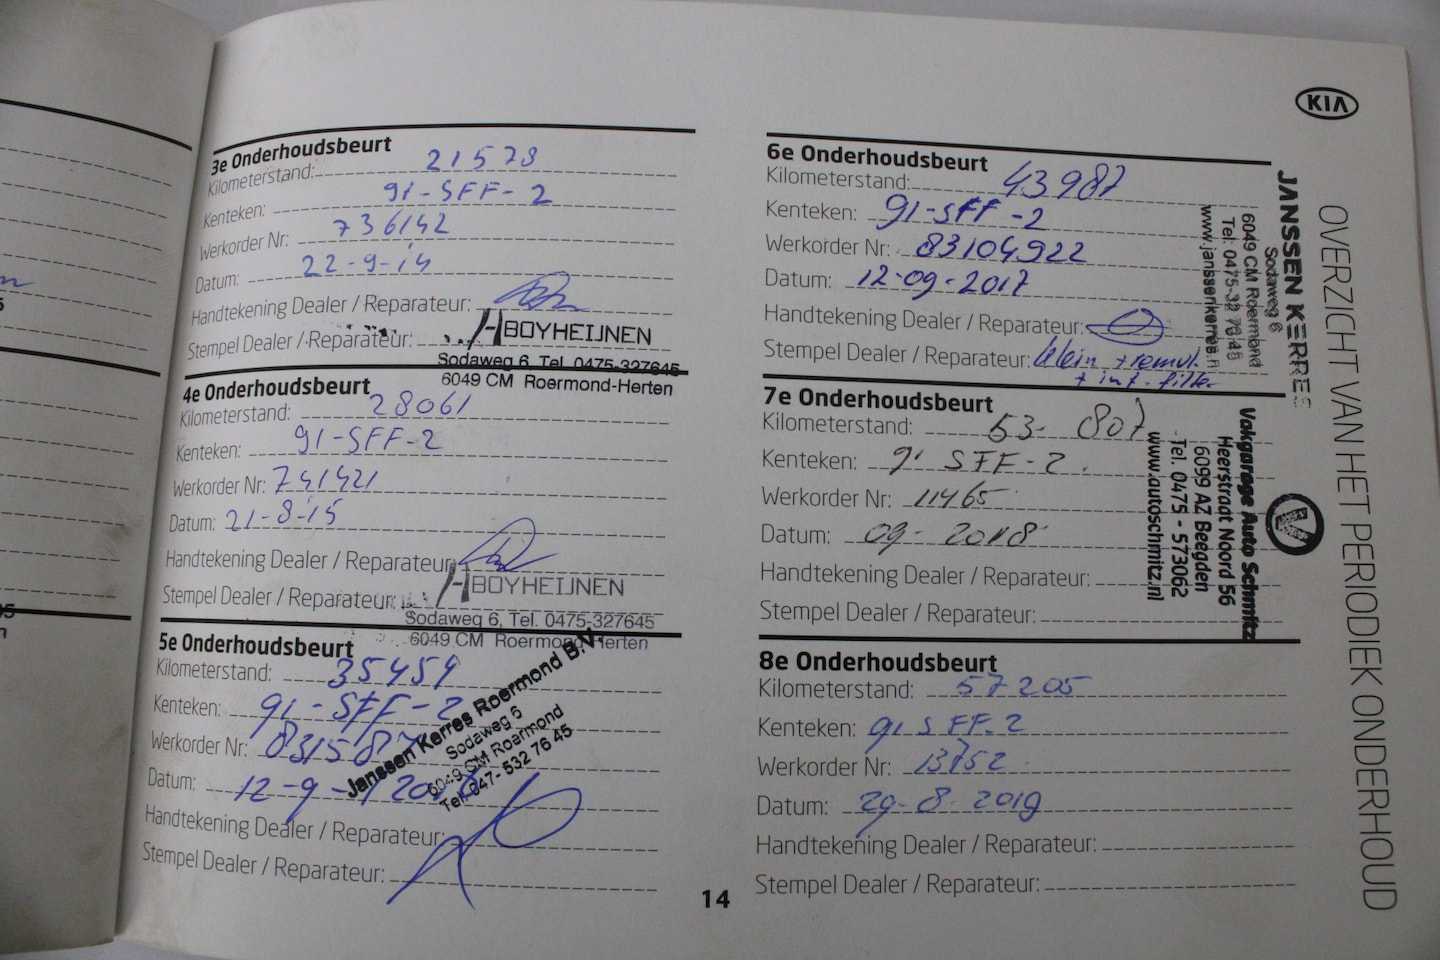 KIA
OVERZICHT VAN HET PERIODIEK ONDERHOUD
3e Onderhoudsbeurt
Kilometerstand: 21578
Kenteken: 91-SFF-2
Werkorder Nr: 736142
Datum: 22-9-14
Handtekening Dealer / Reparateur:
Stempel Dealer / Reparateur:
BOYHEIJNEN
Sodaweg 6, Tel. 0475-327645
6049 CM Roermond-Herten
4e Onderhoudsbeurt
Kilometerstand: 28061
Kenteken: 91-SFF-2
Werkorder Nr: 741421
Datum: 21-8-15
Handtekening Dealer / Reparateur:
Stempel Dealer / Reparateur:
BOYHEIJNEN
Sodaweg 6, Tel. 0475-327645
6049 CM Roermond-Herten
5e Onderhoudsbeurt
Kilometerstand: 35459
Kenteken: 91-SFF-2
Werkorder Nr:
Datum: 12-9-
Handtekening Dealer / Reparateur:
Stempel Dealer / Reparateur:
Janssen Kerres Roermond B.V.
Sodaweg 6
6049 CM Roermond
Tel. 047- 532 76 45
6e Onderhoudsbeurt
Kilometerstand: 43987
Kenteken: 91-SFF-2
Werkorder Nr: 83104922
Datum: 12-09-2017
Handtekening Dealer / Reparateur:
Stempel Dealer / Reparateur: klein + remvl.
+ int. filter
JANSSEN KERRES
Sodaweg 6
6049 CM Roermond
Tel: 0475-32 76 45
www.janssenkerres.n
7e Onderhoudsbeurt
Kilometerstand: 53.807
Kenteken: 91 SFF-2.
Werkorder Nr: 11465
Datum: 09-2018
Handtekening Dealer / Reparateur:
Stempel Dealer / Reparateur:
Vakgarage Auto Schmitz
Heerstraat Noord 56
6099 AZ Beegden
Tel. 0475 - 573062
www.autoschmitz.nl
8e Onderhoudsbeurt
Kilometerstand: 57205
Kenteken: 91 SFF-2
Werkorder Nr: 13752
Datum: 29-8-2019
Handtekening Dealer / Reparateur:
Stempel Dealer / Reparateur:
14